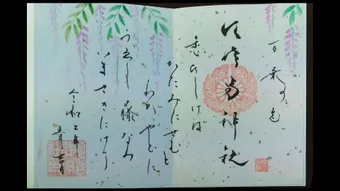 万葉の色
神社
恋ひしけば
かたみにせむと
わがやどに
うゑし藤なみ
いまさきにけり
令和二年
五月